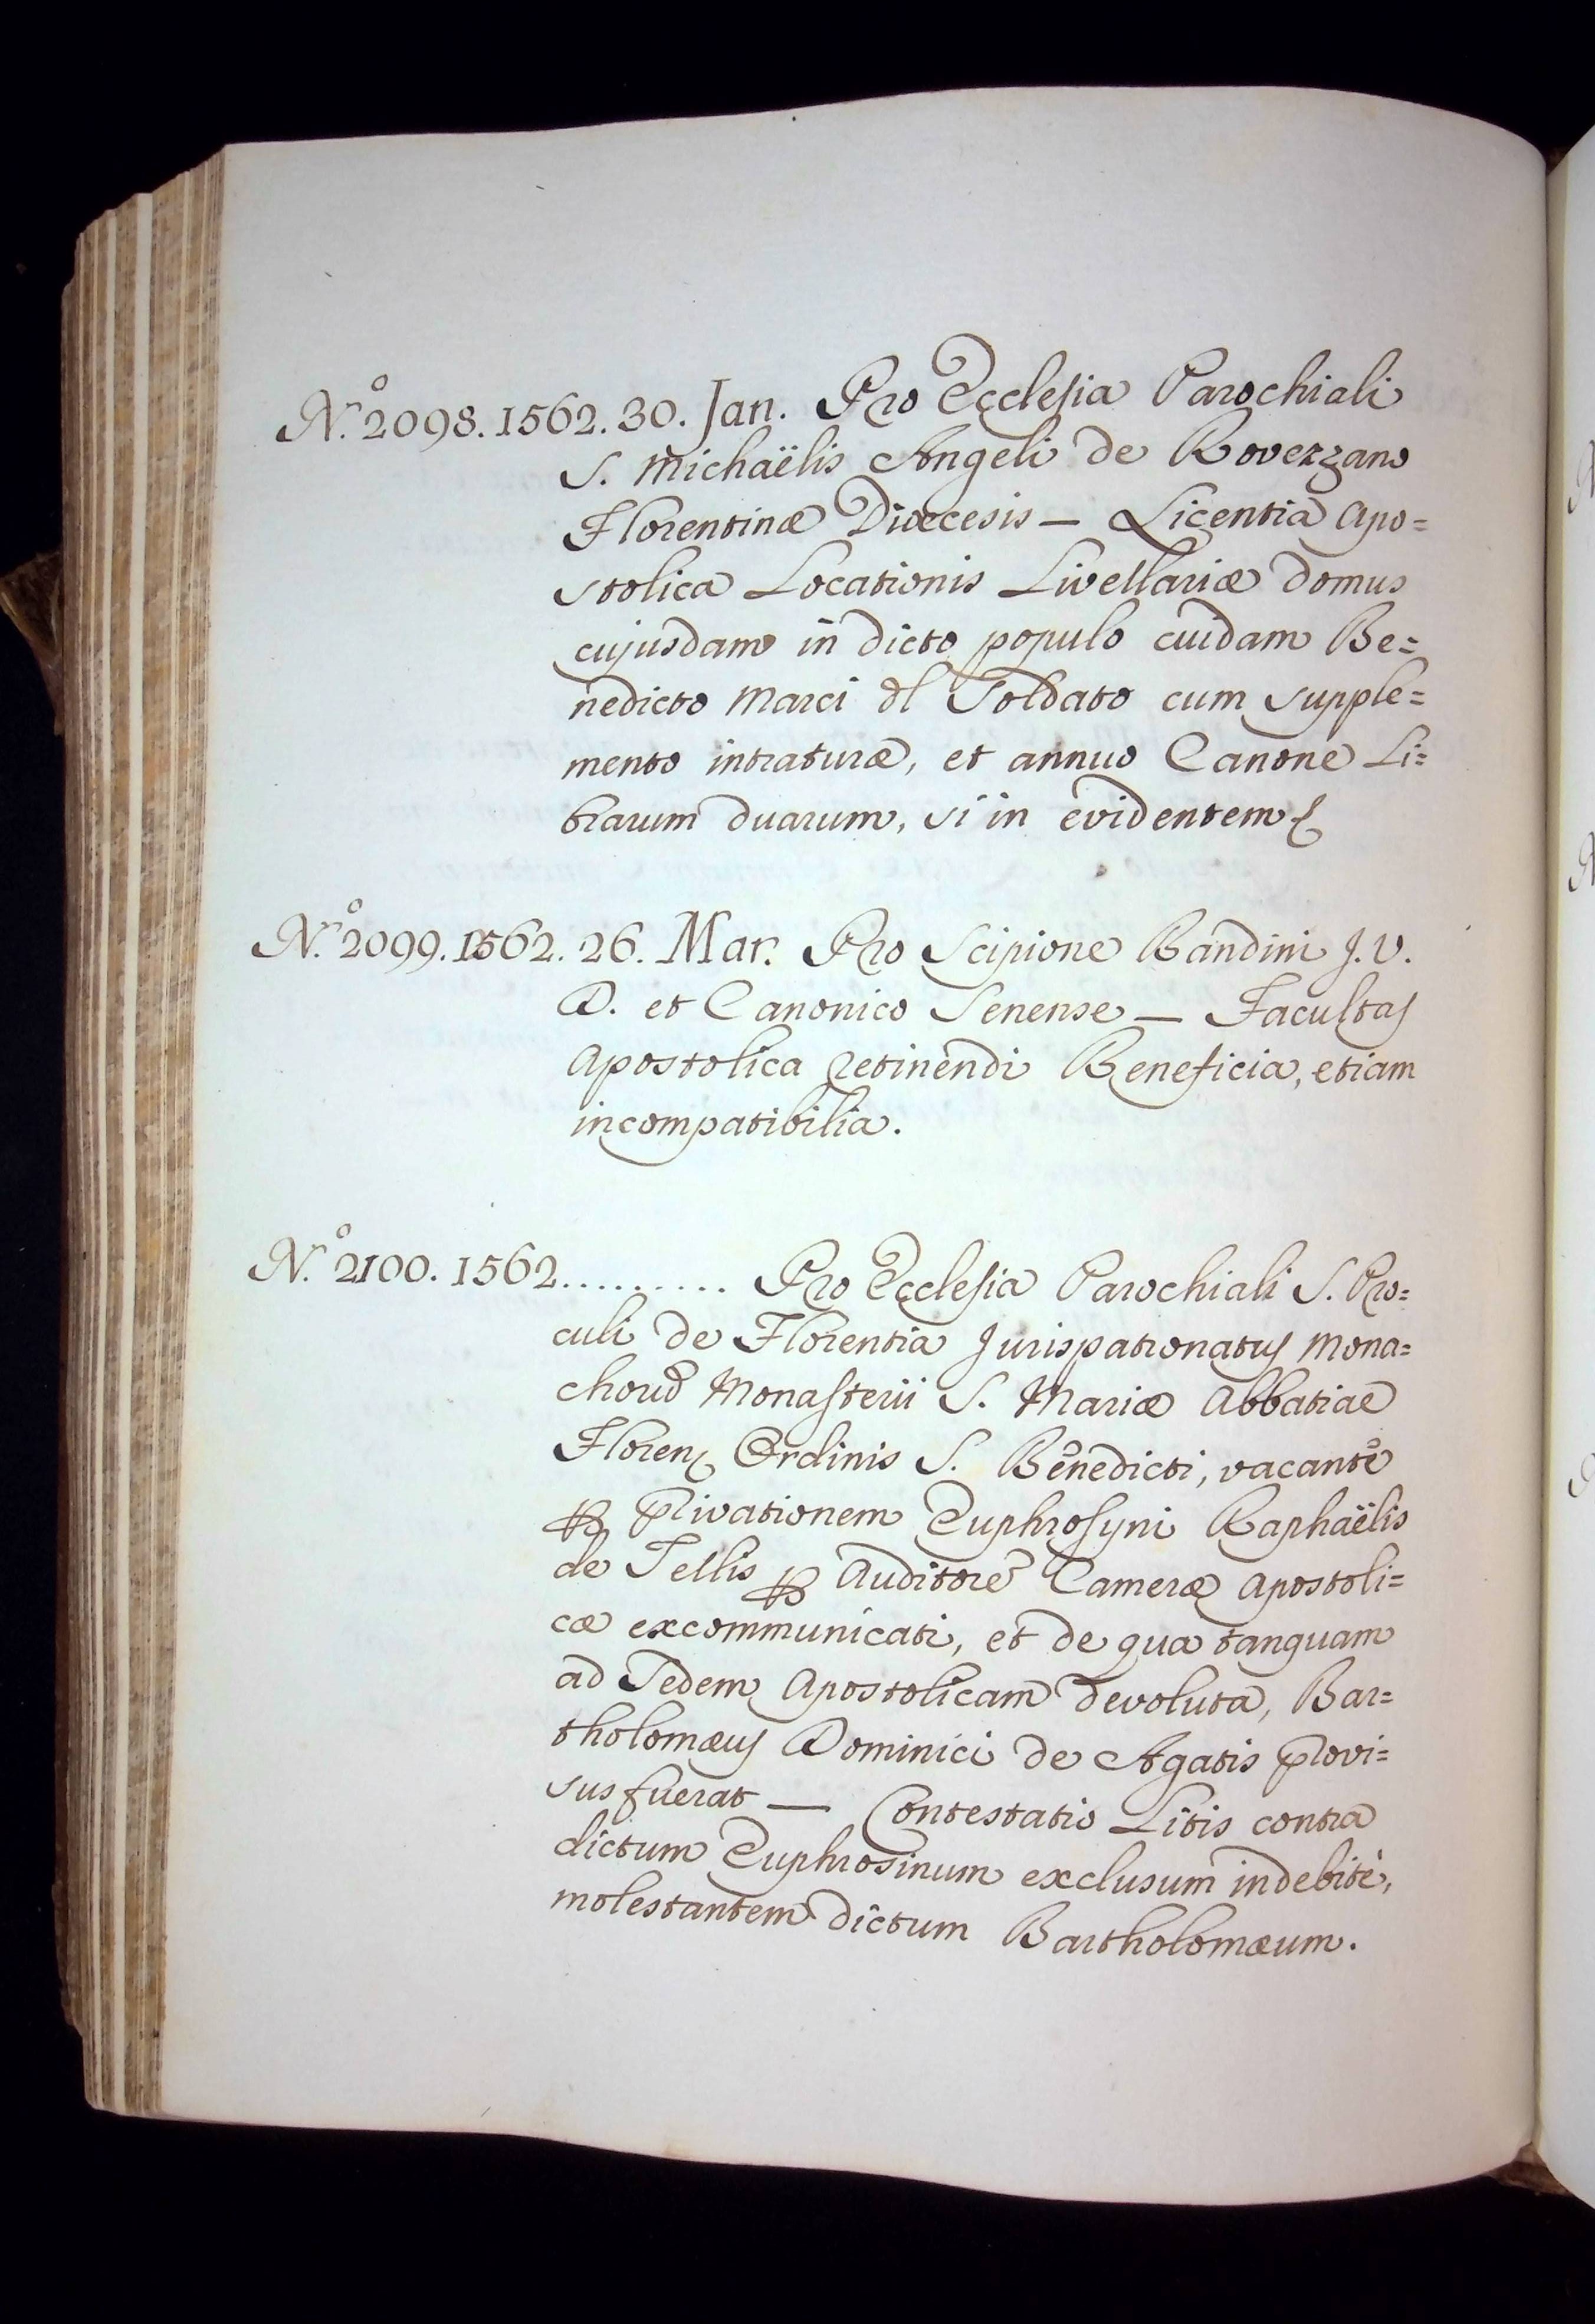 N.º 2098. 1562. 30. Jan. Pro Ecclesia Parochiali
S. Michaëlis Angeli de Rovezzano
Florentinæ Diœcesis — Licentia Apo=
stolica Locationis Livellariæ domus
cujusdam in dicto populo cuidam Be=
nedicto Marci dl Soldato cum supple=
mento intraturæ, et annuo Canone Li=
brarum duarum, si in evidentem
N.º 2099. 1562. 26. Mar. Pro Scipione Bandini J. V.
D. et Canonico Senense — Facultas
Apostolica retinendi Beneficia, etiam
incompatibilia.
N.º 2100. 1562.......... Pro Ecclesia Parochiali S. Pro=
culi de Florentia Jurispatronatus Mona=
chorū Monasterii S. Mariæ Abbatiae
Floren Ordinis S. Benedicti, vacante
ꝑ privationem Euphrosyni Raphaëlis
de Tellis ꝑ Auditore Cameræ Apostoli=
cæ excommunicati, et de qua tanquam
ad Sedem Apostolicam devoluta, Bar=
tholomæus Dominici de Agatis provi=
sus fuerat — Contestatio Litis contra
dictum Euphrosinum exclusum indebitè,
molestantem dictum Bartholomæum.